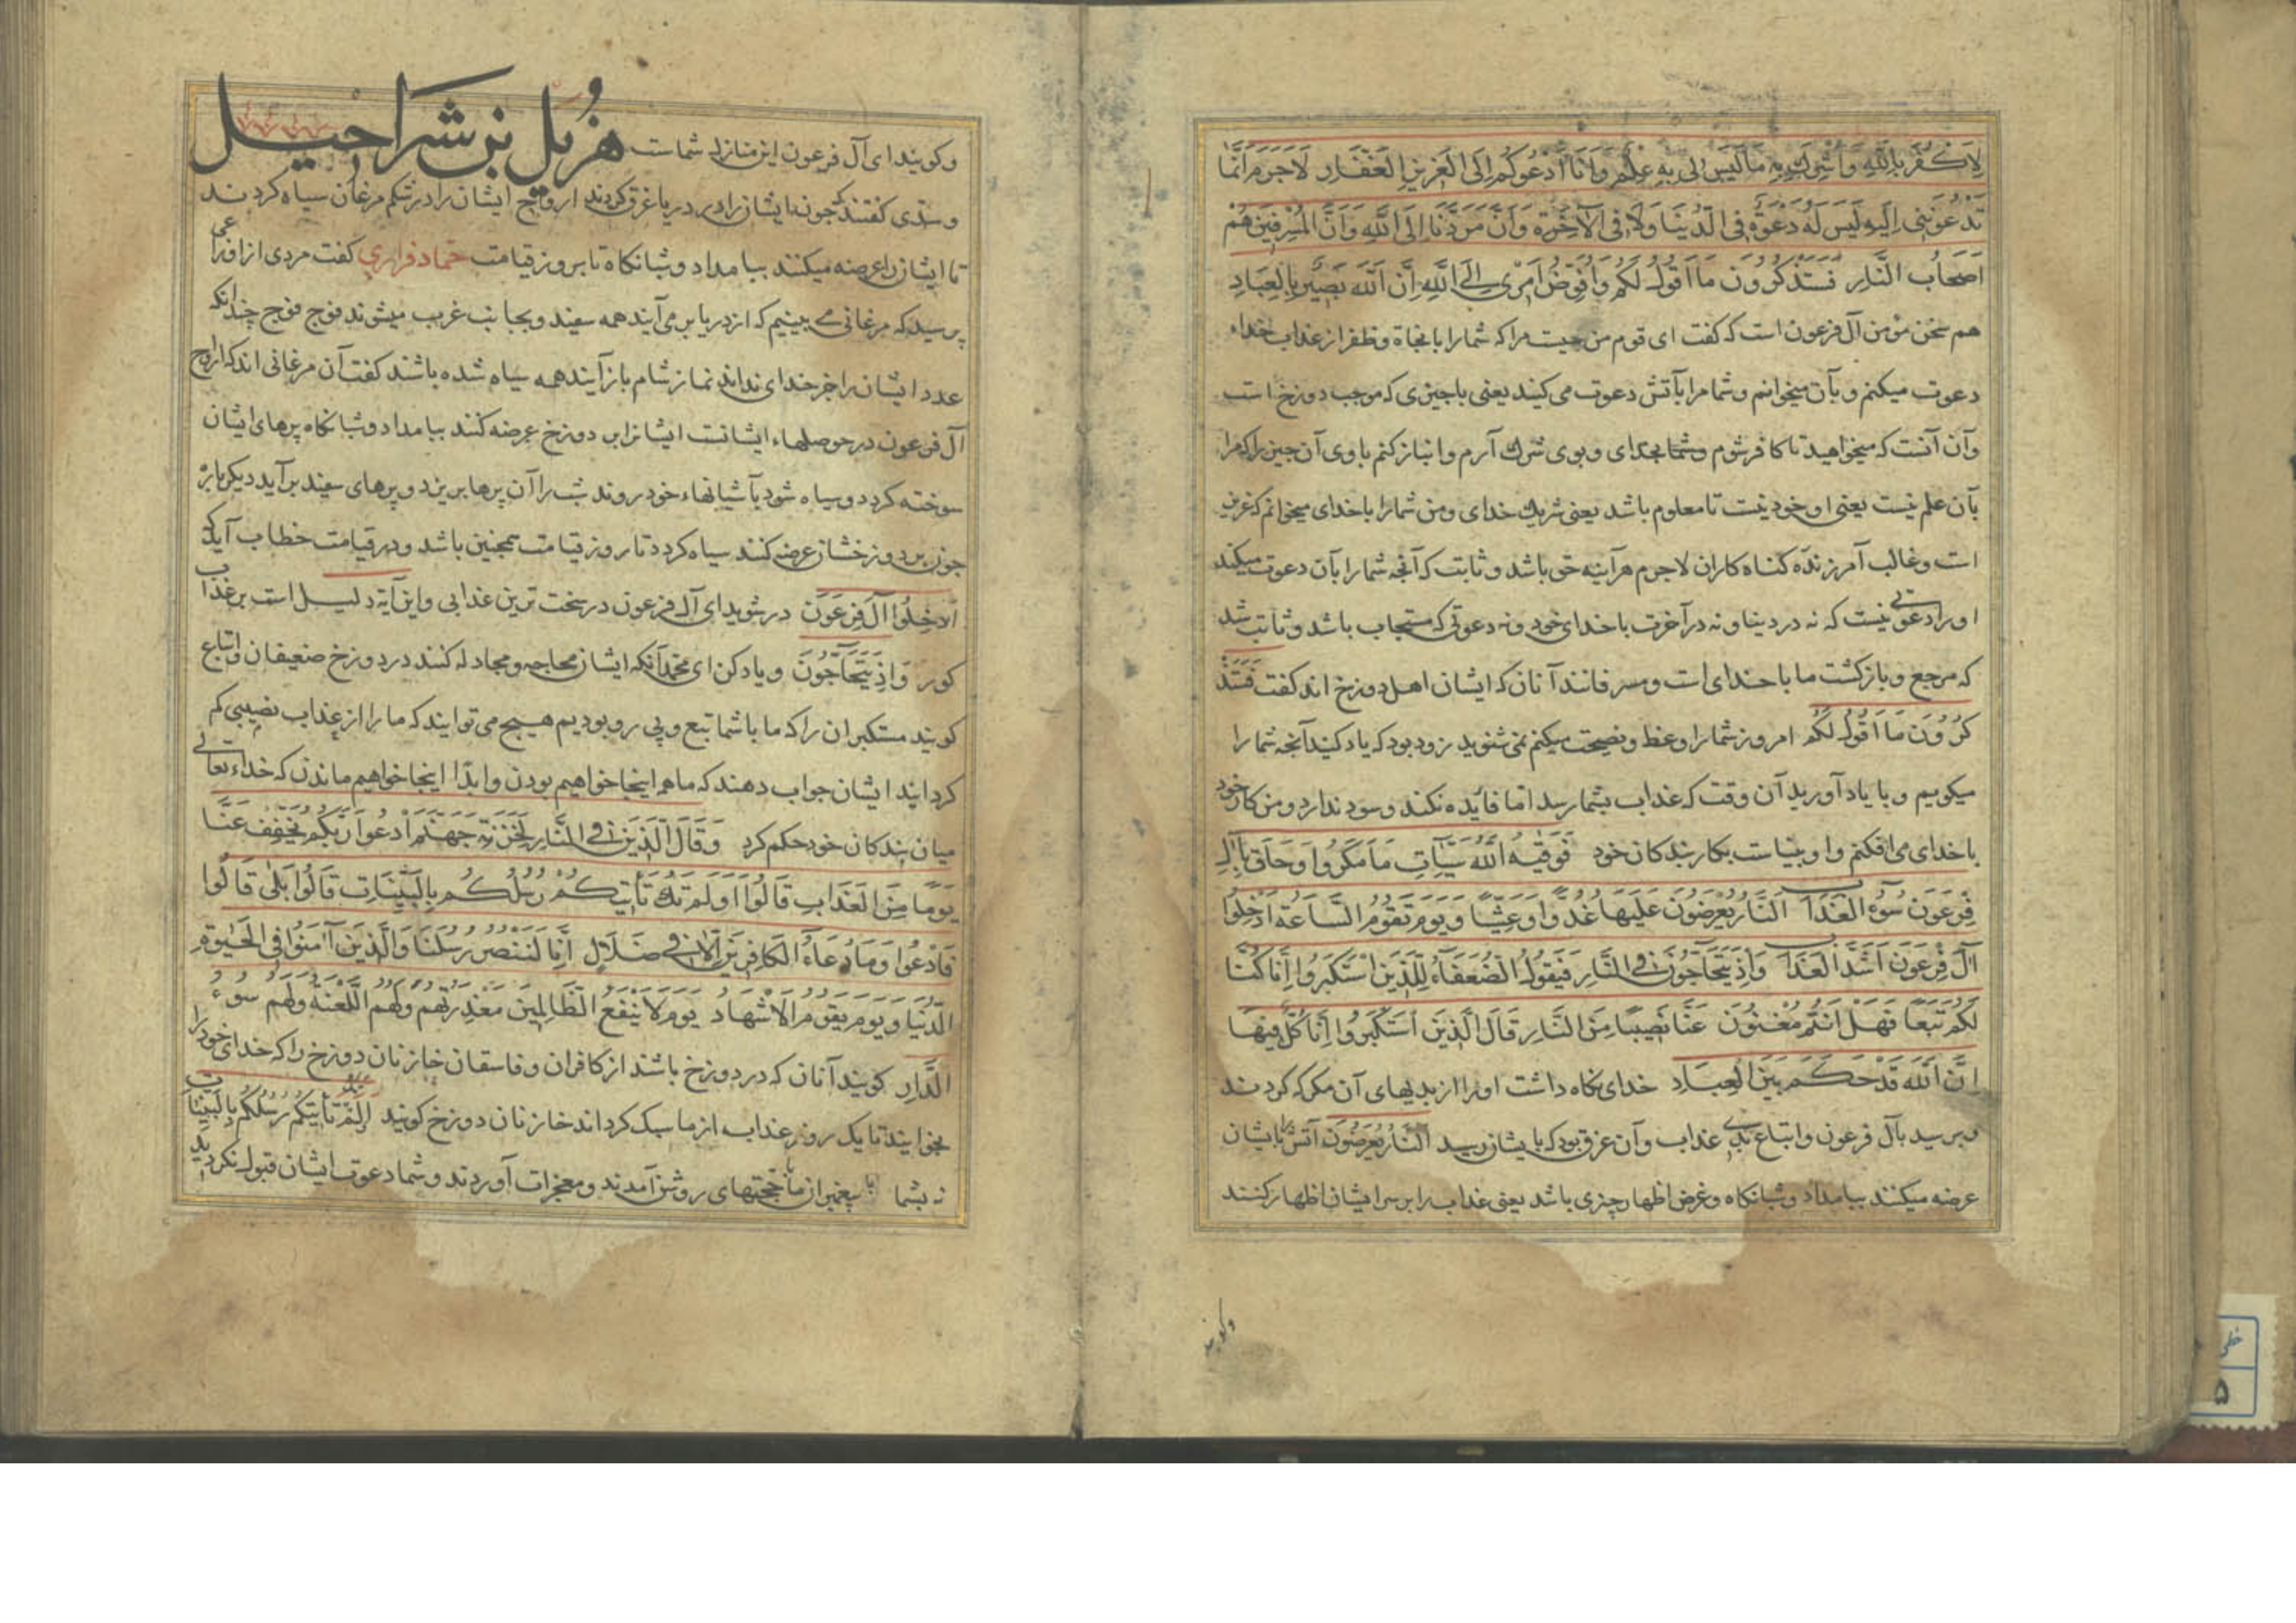 لِاَكْفُرَ بِاللَّهِ وَاُشْرِكَ بِهِ مَا لَيْسَ لِى بِهِ عِلْمٌ وَاَنَا اَدْعُوكُمْ اِلَى الْعَزِيزِ الْغَفَّارِ لَاجَرَمَ اَنَّمَا
تَدْعُونَنِى اِلَيْهِ لَيْسَ لَهُ دَعْوَةٌ فِى الدُّنْيَا وَلَا فِى الْآخِرَةِ وَاَنَّ مَرَدَّنَا اِلَى اللَّهِ وَاَنَّ الْمُسْرِفِينَ هُمْ
اَصْحَابُ النَّارِ فَسَتَذْكُرُونَ مَا اَقُولُ لَكُمْ وَاُفَوِّضُ اَمْرِى اِلَى اللَّهِ اِنَّ اللَّهَ بَصِيرٌ بِالْعِبَادِ
هم سخن مؤمن آل فرعون است که کفت ای قوم من چیست مرا که شما را با نجاة و ظفر از عذاب خداء
دعوت میکنم و بآن میخوانم و شما مرا بآتش دعوت می کنید یعنی با چیزی که موجب دوزخ است
وآن آنست که میخواهید تا کافر شوم و شما بخدای و بوی شرك آرم و انباز کنم با وی آن چیز را که مرا
بآن علم نیست یعنی او خود نیست تا معلوم باشد یعنی شریك خدای ومن شما را با خدای میخوانم که عزیز
است و غالب آمرزنده کناه کاران لاجرم هرآینه حق باشد و ثابت که آنچه شما را بآن دعوت میکند
او را دعوتی نیست که نه در دینا و نه در آخرت با خدای خود و نه دعوتی که مستجاب باشد و ثابت شد
که مرجع و بازکشت ما با خدای است و مسرفانند آنان که ایشان اهل دوزخ اند کفت فَسَتَذْ
كُرُونَ مَا اَقُولُ لَكُمْ امروز شما را وعظ و نصیحت میکنم نمی شنوید زود بود که یاد کنید آنچه شما را
میکویم و با یاد آورید آن وقت که عذاب بشما رسد اما فایده نکند و سود ندارد و من کار خود
با خدای می افکنم و او بیناست بکار بندکان خود فَوَقيهُ اللَّهُ سَيِّئَاتِ مَا مَكَرُوا وَحَاقَ بِآلِ
فِرْعَوْنَ سُوءُ الْعَذَابِ اَلنَّارُ يُعْرَضُونَ عَلَيْهَا غُدُوًّا وَعَشِيًّا وَيَوْمَ تَقُومُ السَّاعَةُ اَدْخِلُوا
آلَ فِرْعَوْنَ اَشَدَّ الْعَذَابِ وَاِذْ يَتَحَآجُّونَ فِى النَّارِ فَيَقُولُ الضُّعَفَاءُ لِلَّذِينَ اسْتَكْبَرُوا اِنَّا كُنَّا
لَكُمْ تَبَعًا فَهَلْ اَنْتُمْ مُغْنُونَ عَنَّا نَصِيبًا مِنَ النَّارِ قَالَ الَّذِينَ اسْتَكْبَرُوا اِنَّا كُلٌّ فِيهَا
اِنَّ اللَّهَ قَدْ حَكَمَ بَيْنَ الْعِبَادِ خدای نکاه داشت او را از بدیهای آن مکر که کردند
و برسید بآل فرعون و اتباع بدی عذاب وآن غرق بود که بایشان رسید اَلنَّارُ يُعْرَضُونَ آتش را بایشان
عرضه میکنند ببامداد و شبانکاه و غرض اظهار چیزی باشد یعنی عذاب را بر سر ایشان اظهار کنند
وکویند
وکویند ای آل فرعون این منازل شماست هزبل بن شَراحیل
و سدی کفتند که چون ایشان را در دریا غرق کردند ارواح ایشان را در شکم مرغان سیاه کردند
تا ایشان را عرضه میکنند ببامداد و شبانکاه تا بروز قیامت حماد فراری کفت مردی از اوزاعی
پرسید که مرغانی می بینیم که از دریا بر می آیند همه سفید و بجانب غرب میشوند فوج فوج چندانکه
عدد ایشان را جز خدای نداند نماز شام بازآیند همه سیاه شده باشند کفت آن مرغانی اند که ارواح
آل فرعون در حوصلهاء ایشانست ایشانرا بر دوزخ عرضه کنند ببامداد و شبانکاه پرهای ایشان
سوخته کردد و سیاه شود بآشیانهاء خود روند شب را آن پرها بریزد و پرهای سفید برآید دیکرباره
چون بر دوزخشان عرضه کنند سیاه کردد تا روز قیامت همچنین باشد ودر قیامت خطاب آید که
اَدْخِلُوا آلَ فِرْعَوْنَ در شوید ای آل فرعون در سخت ترین عذابی و این آیه دلیل است بر عذاب
کور وَاِذْ يَتَحَآجُّونَ و یاد کن ای محمد آنکه ایشان محاجه و مجادله کنند در دوزخ ضعیفان و اتباع
کویند مستکبران را که ما با شما تبع و پی رو بودیم هیچ می توانید که ما را از عذاب نصیبی کم
کردانید ایشان جواب دهند که ما هم اینجا خواهیم بودن و ابدا اینجا خواهیم ماندن که خداء تعالی
میان بندکان خود حکم کرد وَقَالَ الَّذِينَ فِى النَّارِ لِخَزَنَةِ جَهَنَّمَ ادْعُوا رَبَّكُمْ يُخَفِّفْ عَنَّا
يَوْمًا مِنَ الْعَذَابِ قَالُوا اَوَلَمْ تَكُ تَأْتِيكُمْ رُسُلُكُمْ بِالْبَيِّنَاتِ قَالُوا بَلَى قَالُوا
فَادْعُوا وَمَا دُعَاءُ الْكَافِرِينَ اِلَّا فِى ضَلَالٍ اِنَّا لَنَنْصُرُ رُسُلَنَا وَالَّذِينَ آمَنُوا فِى الْحَيٰوةِ
الدُّنْيَا وَيَوْمَ يَقُومُ الْاَشْهَادُ يَوْمَ لَا يَنْفَعُ الظَّالِمِينَ مَعْذِرَتُهُمْ وَلَهُمُ اللَّعْنَةُ وَلَهُمْ سُوءُ
الدَّارِ کویند آنان که در دوزخ باشند از کافران و فاسقان خازنان دوزخ را که خدای خود را
بخوانیند تا یک روز عذاب از ما سبک کرداند خازنان دوزخ کویند اَلَمْ تَأْتِيكُمْ رُسُلُكُمْ بِالْبَيِّنَاتِ
نه بشما پیغمبران ما با حجتهای روشن آمدند و معجزات آوردند و شما دعوت ایشان قبول نکردید
خطی
۵